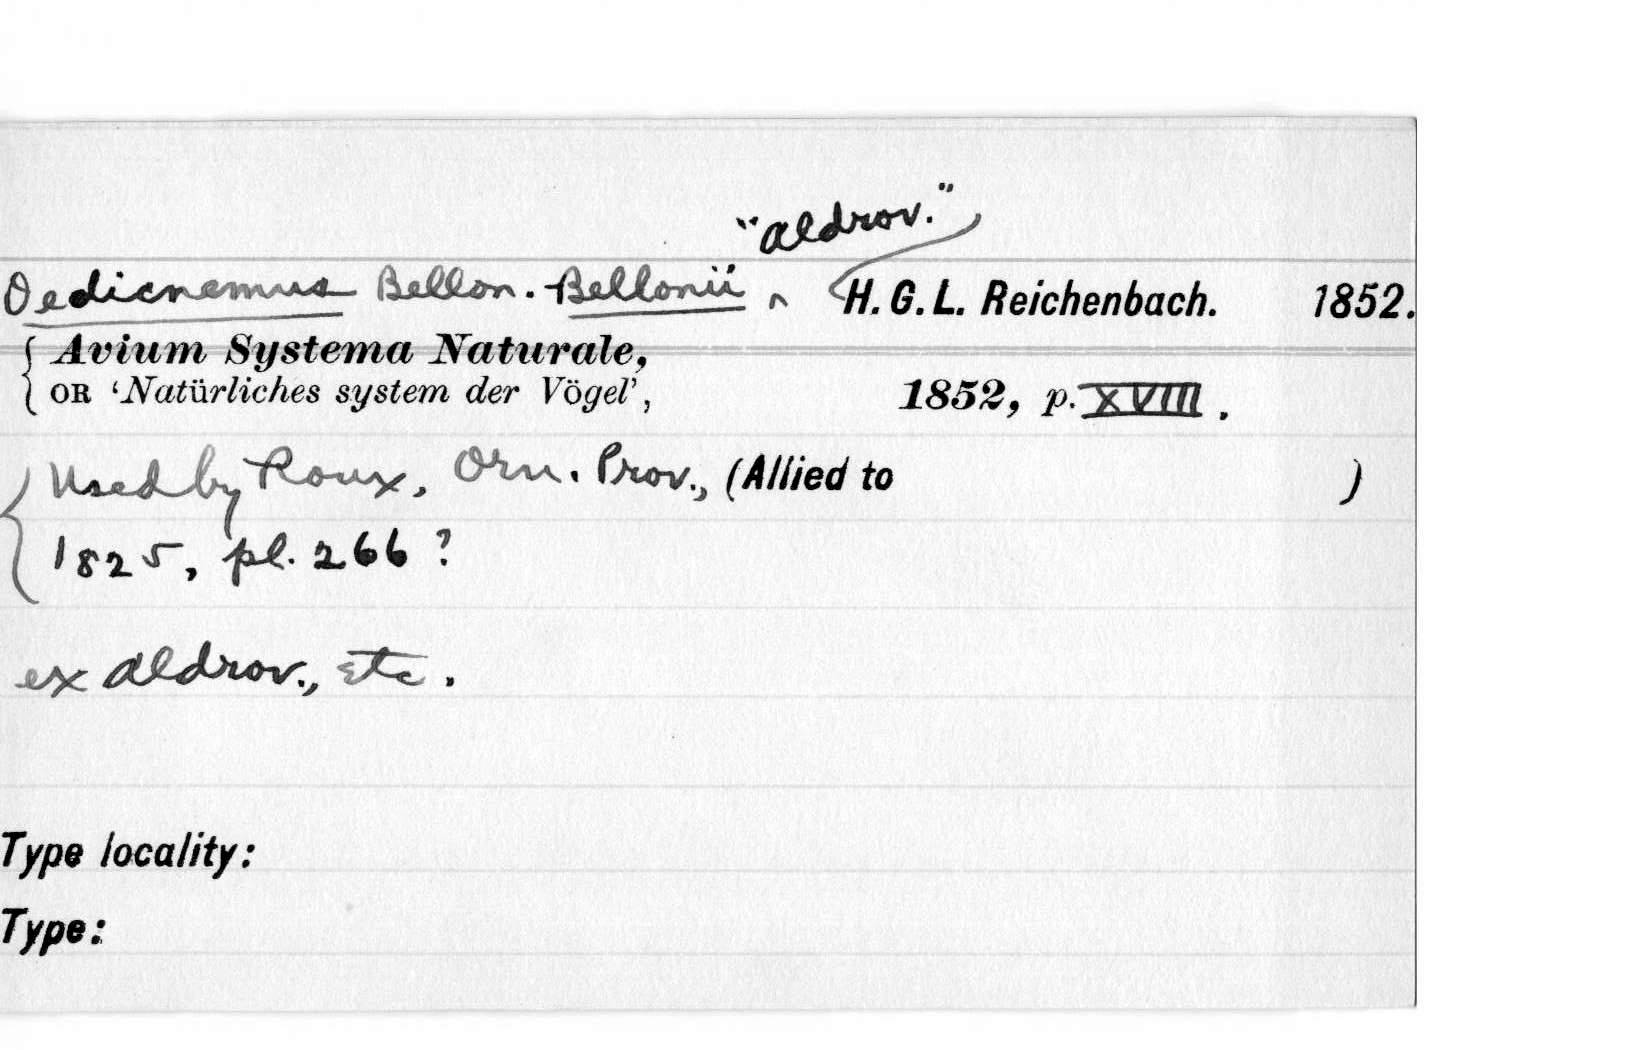 "Aldrov."
Oedicnemus Bellon. Bellonii ^ H. G. L. Reichenbach. 1852.
Avium Systema Naturale,
OR 'Natürliches system der Vögel', 1852, p. XVIII.
Used by Roux, Orn. Prov., (Allied to )
1825, pl. 266?
ex Aldrov., etc.
Type locality:
Type: